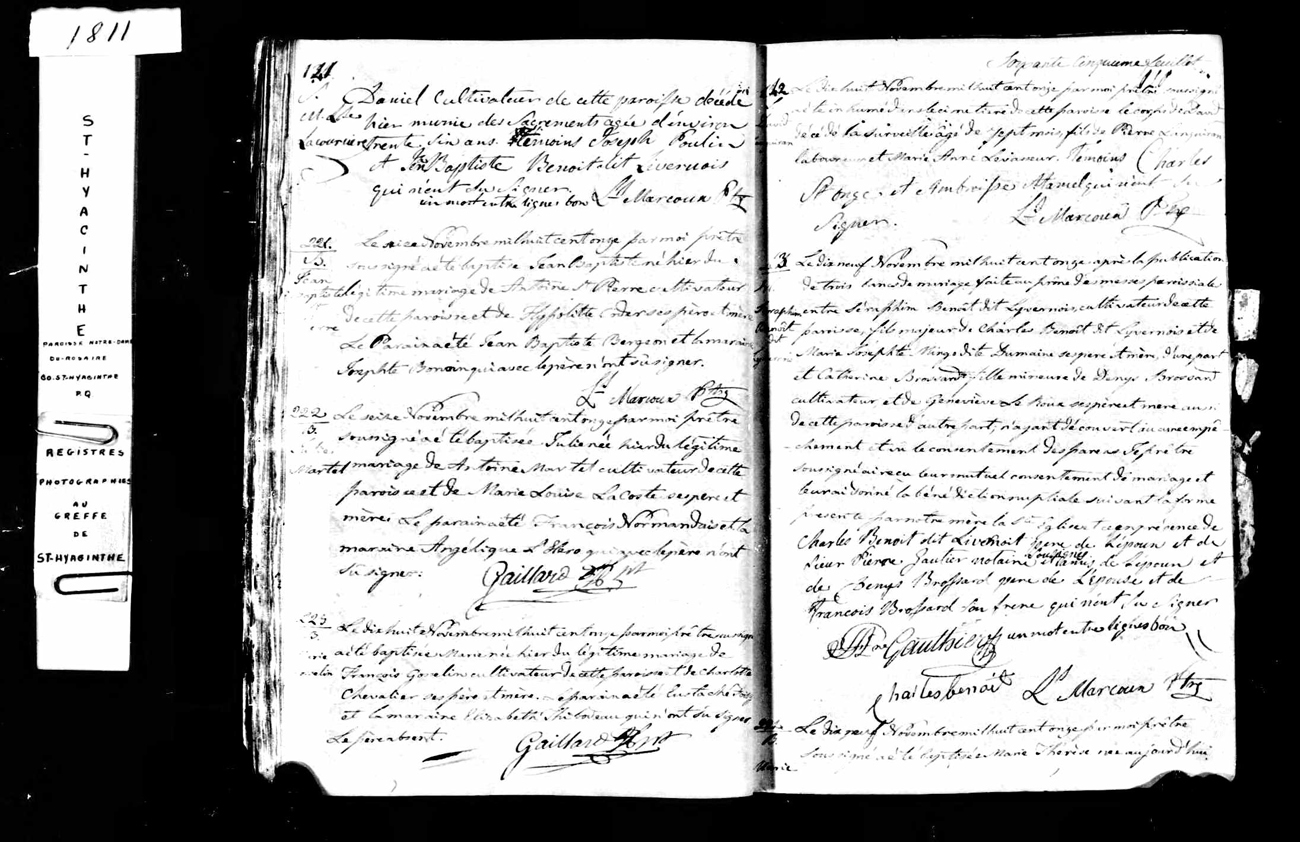 1811
ST-HYACINTHE
PAROISSE NOTRE-DAME
DU-ROSAIRE
CO. ST-HYACINTHE
P.Q
REGISTRES
PHOTOGRAPHIES
AU
GREFFE
DE
ST-HYACINTHE
121
Daniel Cultivateur de cette paroisse décédé
hier munie des Sacrements agée d'environ
trente six ans. Temoins Joseph Poulin
et Jn Baptiste Benoit dit Livernois
qui n'ont su signer.
un mot entre lignes bon Ls Marcoux Ptre
221.
B.
Jean
Baptiste
Le seize Novembre mil huit cent onze par moi prêtre
soussigné a été baptisé Jean Baptiste né hier du
légitime mariage de Antoine St Pierre cultivateur
de cette paroisse et de Hypolitte ses père et mère
Le Parain a été Jean Baptiste Bergeron et la maraine
Josephte qui avec le père n'ont su signer.
Ls Marcoux Ptre
222
B.
Julie
Martel
Le seize Novembre mil huit cent onze par moi prêtre
soussigné a été baptisée Julie née hier du légitime
mariage de Antoine Martel cultivateur de cette
paroisse et de Marie Louise La Coste ses père et
mère. Le parain a été François Normandin et la
maraine Angélique qui avec le père n'ont
su signer. Gaillard Ptre
223
B.
Le dix huit Novembre mil huit cent onze par moi prêtre soussigné
a été baptisée Marie née hier du légitime mariage de
François Gosselin cultivateur de cette paroisse et de Charlotte
Chevalier ses père et mère. Le parain a été
et la maraine Elizabeth Thibodeau qui n'ont su signer
Le père absent. Gaillard Ptre
Soixante Cinquieme feuillet
Le dix huit Novembre mil huit cent onze par moi prêtre soussigné
a été inhumé dans le cimetière de cette paroisse le corps de
décédé la surveille âgé de sept mois, fils de Pierre
laboureur et Marie Anne Levasseur. Témoins Charles
St onge et Ambroise Hamel qui n'ont su
signer. Ls Marcoux Ptre
Seraphin
Benoit
Le dix neuf Novembre mil huit cent onze après la publication
de trois bancs de mariage faite au prône des messes paroissiales
entre Séraphim Benoît dit Lyvernois, cultivateur de cette
paroisse, fils majeur de Charles Benoît dit Lyvernois et de
Marie Josephte dite Dumaine ses père et mère, d'une part
et Catherine Brossard fille mineure de Denys Brossard
cultivateur et de Geneviève Le Roux ses père et mère aussi
de cette paroisse d'autre part, n'ayant découvert aucun empê
chement et vu le consentement des parens Je prêtre
soussigné ai reçu leur mutuel consentement de mariage et
leur ai donné la bénédiction nuptiale suivant la forme
prescrite par notre mère la Ste Eglise et ce en présence de
Charles Benoit dit Livernoit père de l'époux et de
Sieur Pierre Gautier notaire soussignés et amis de l'époux et
de Denys Brossard père de l'épouse et de
François Brossard son frere qui n'ont su signer
Gauthier un mot entre lignes bon
Charles benoit Ls Marcoux Ptre
B.
Marie
Le dix neuf Novembre mil huit cent onze par moi prêtre
soussigné a été baptisée Marie Thérèse née aujourd'hui